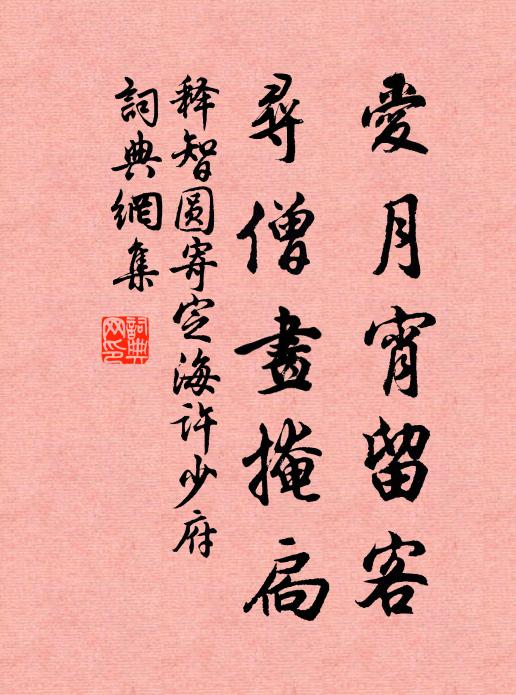 愛月宵留客
尋僧晝掩扃
释智圓寄定海许少府
詞典網集
詞典網印